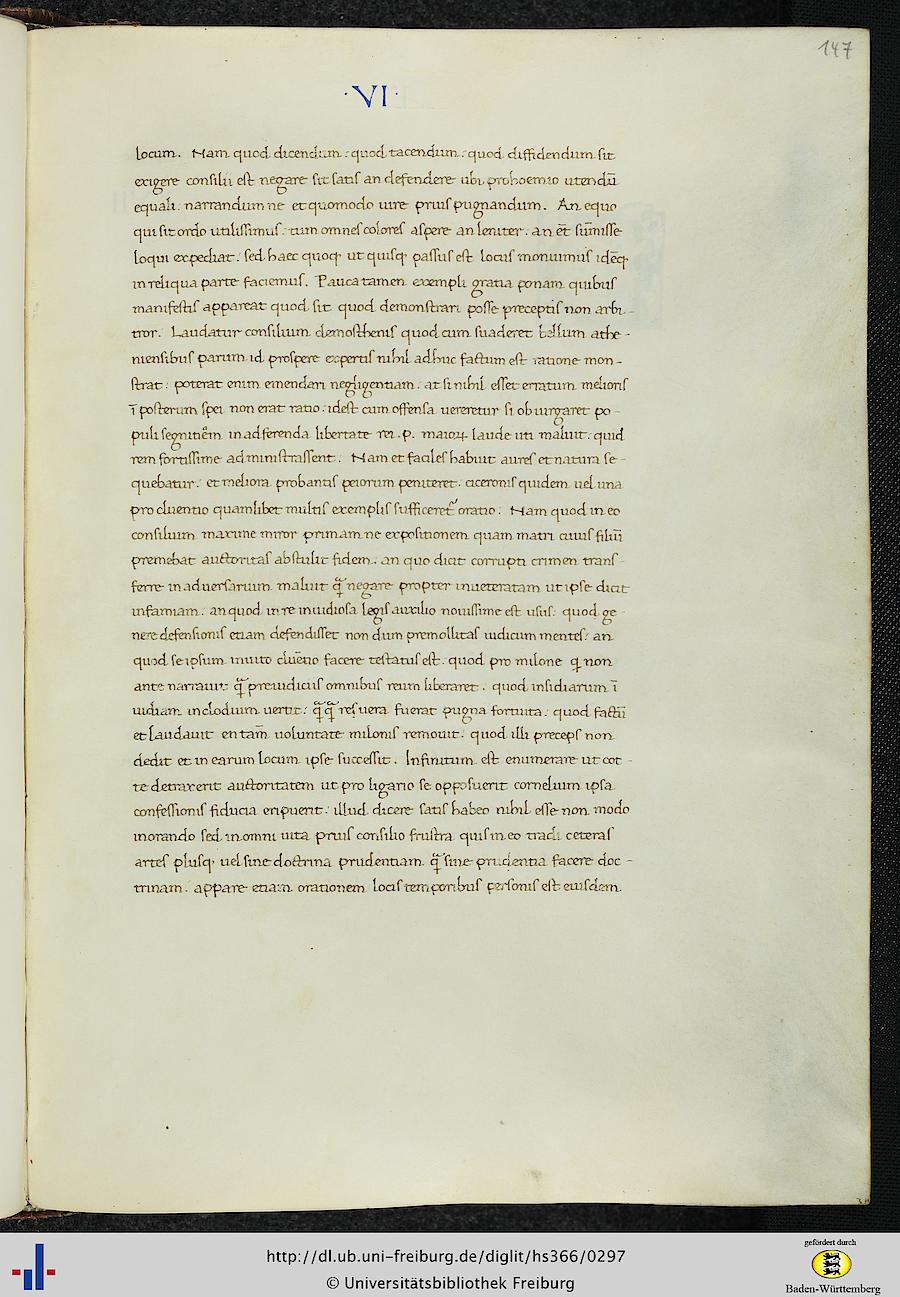 147
·VI·
locum. Nam quod dicendum: quod tacendum: quod diffidendum sit
exigere consilii est negare sit satis an defendere ubi prohoemio utendū
equali: narrandum ne et quomodo iure prius pugnandum. An equo
qui sit ordo utilissimus: tum omnes colores aspere an leniter: an ēt sūmisse
loqui expediat: sed haec quoqꝫ ut quisqꝫ passus est locus monuimus idēqꝫ
in reliqua parte faciemus. Pauca tamen exempli gratia ponam quibus
manifestis appareat quod sit quod demonstrari posse preceptis non arbi-
tror. Laudatur consilium demosthenis quod cum suaderet bellum athe-
niensibus parum id prospere expertis nihil adhuc factum est ratione mon-
strat: poterat enim emendari negligentiam: at si nihil esset erratum melioris
ī posterum spei non erat ratio: idest cum offensa uereretur si obiurgaret po-
puli segnitiem in adserenda libertate rei .p. maioꝝ laude uti maluit: quid
rem fortissime administrassent: Nam et faciles habuit aures et natura se-
quebatur: et meliora probantis peiorum peniteret: ciceronis quidem uel una
pro cluentio quamlibet multis exemplis sufficeret oratio: Nam quod in eo
consilium maxime miror primam ne expositionem quam matri cuius filiū
premebat auctoritas abstulit fidem: an quo dicit corrupti crimen trans-
ferre in aduersarium maluit q̄ negare propter inueteratam ut ipse dicit
infamiam: an quod in re inuidiosa legis auxilio nouissime est usus: quod ge-
nere defensionis etiam defendisset non dum premollitas iudicum mentes: an
quod se ipsum inuito cluētio facere testatus est: quod pro milone q non
ante narrauit q̄ preiudiciis omnibus reum liberaret: quod insidiarum ī
uidiam in clodium uertit: q̄q̄ res uera fuerat pugna fortuita: quod factū
et laudauit en tam̄ uoluntate milonis remouit: quod illi preceps non
dedit et in earum locum ipse successit. Infinitum est enumerare ut cot-
te detraxerit auctoritatem ut pro ligario se opposuerit cornelium ipsa
confessionis fiducia eripuerit: illud dicere satis habeo nihil esse non modo
inorando sed in omni uita prius consilio frustra quis in eo tradi ceteras
artes plusqꝫ uel sine doctrina prudentiam q̄ sine prudentia facere doc-
trinam: appare etiam orationem locis temporibus personis est eiusdem.
http://dl.ub.uni-freiburg.de/diglit/hs366/0297
© Universitätsbibliothek Freiburg
gefördert durch
Baden-Württemberg